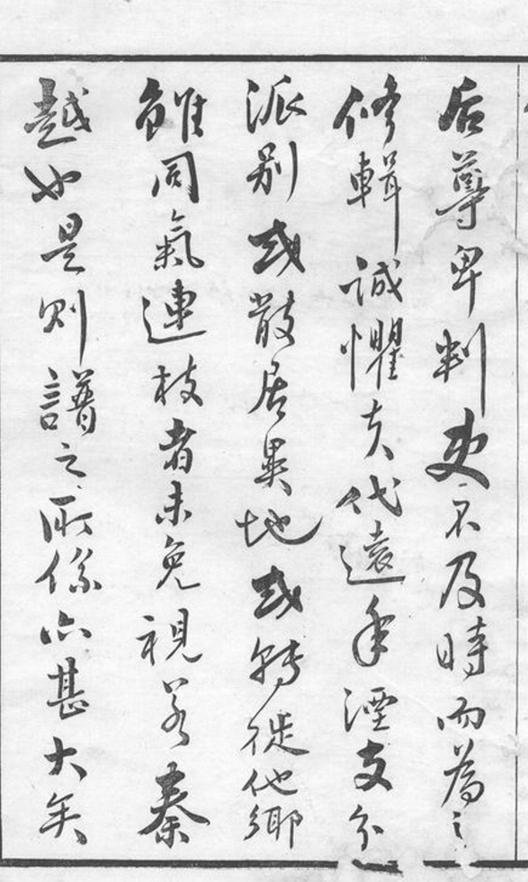 后尊卑判史不及時而為之
修輯誠懼夫代遠年湮支分
派別或散居異地或轉徙他鄉
雖同氣連枝者未免視若秦
越也是則譜之所係亦甚大矣